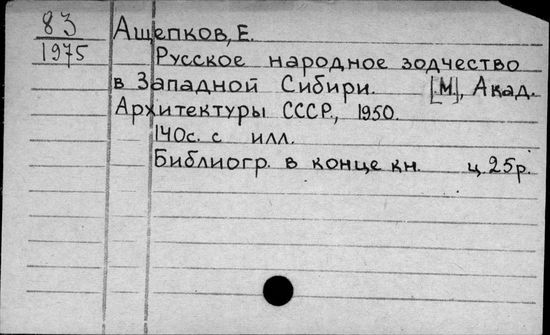 83 Ащепков, Е.
1975 Русское народное зодчество
в Западной Сибири. [М], Акад.
Архитектуры СССР., 1950.
140с. с илл.
Библиогр. в конце кн. ц. 25р.